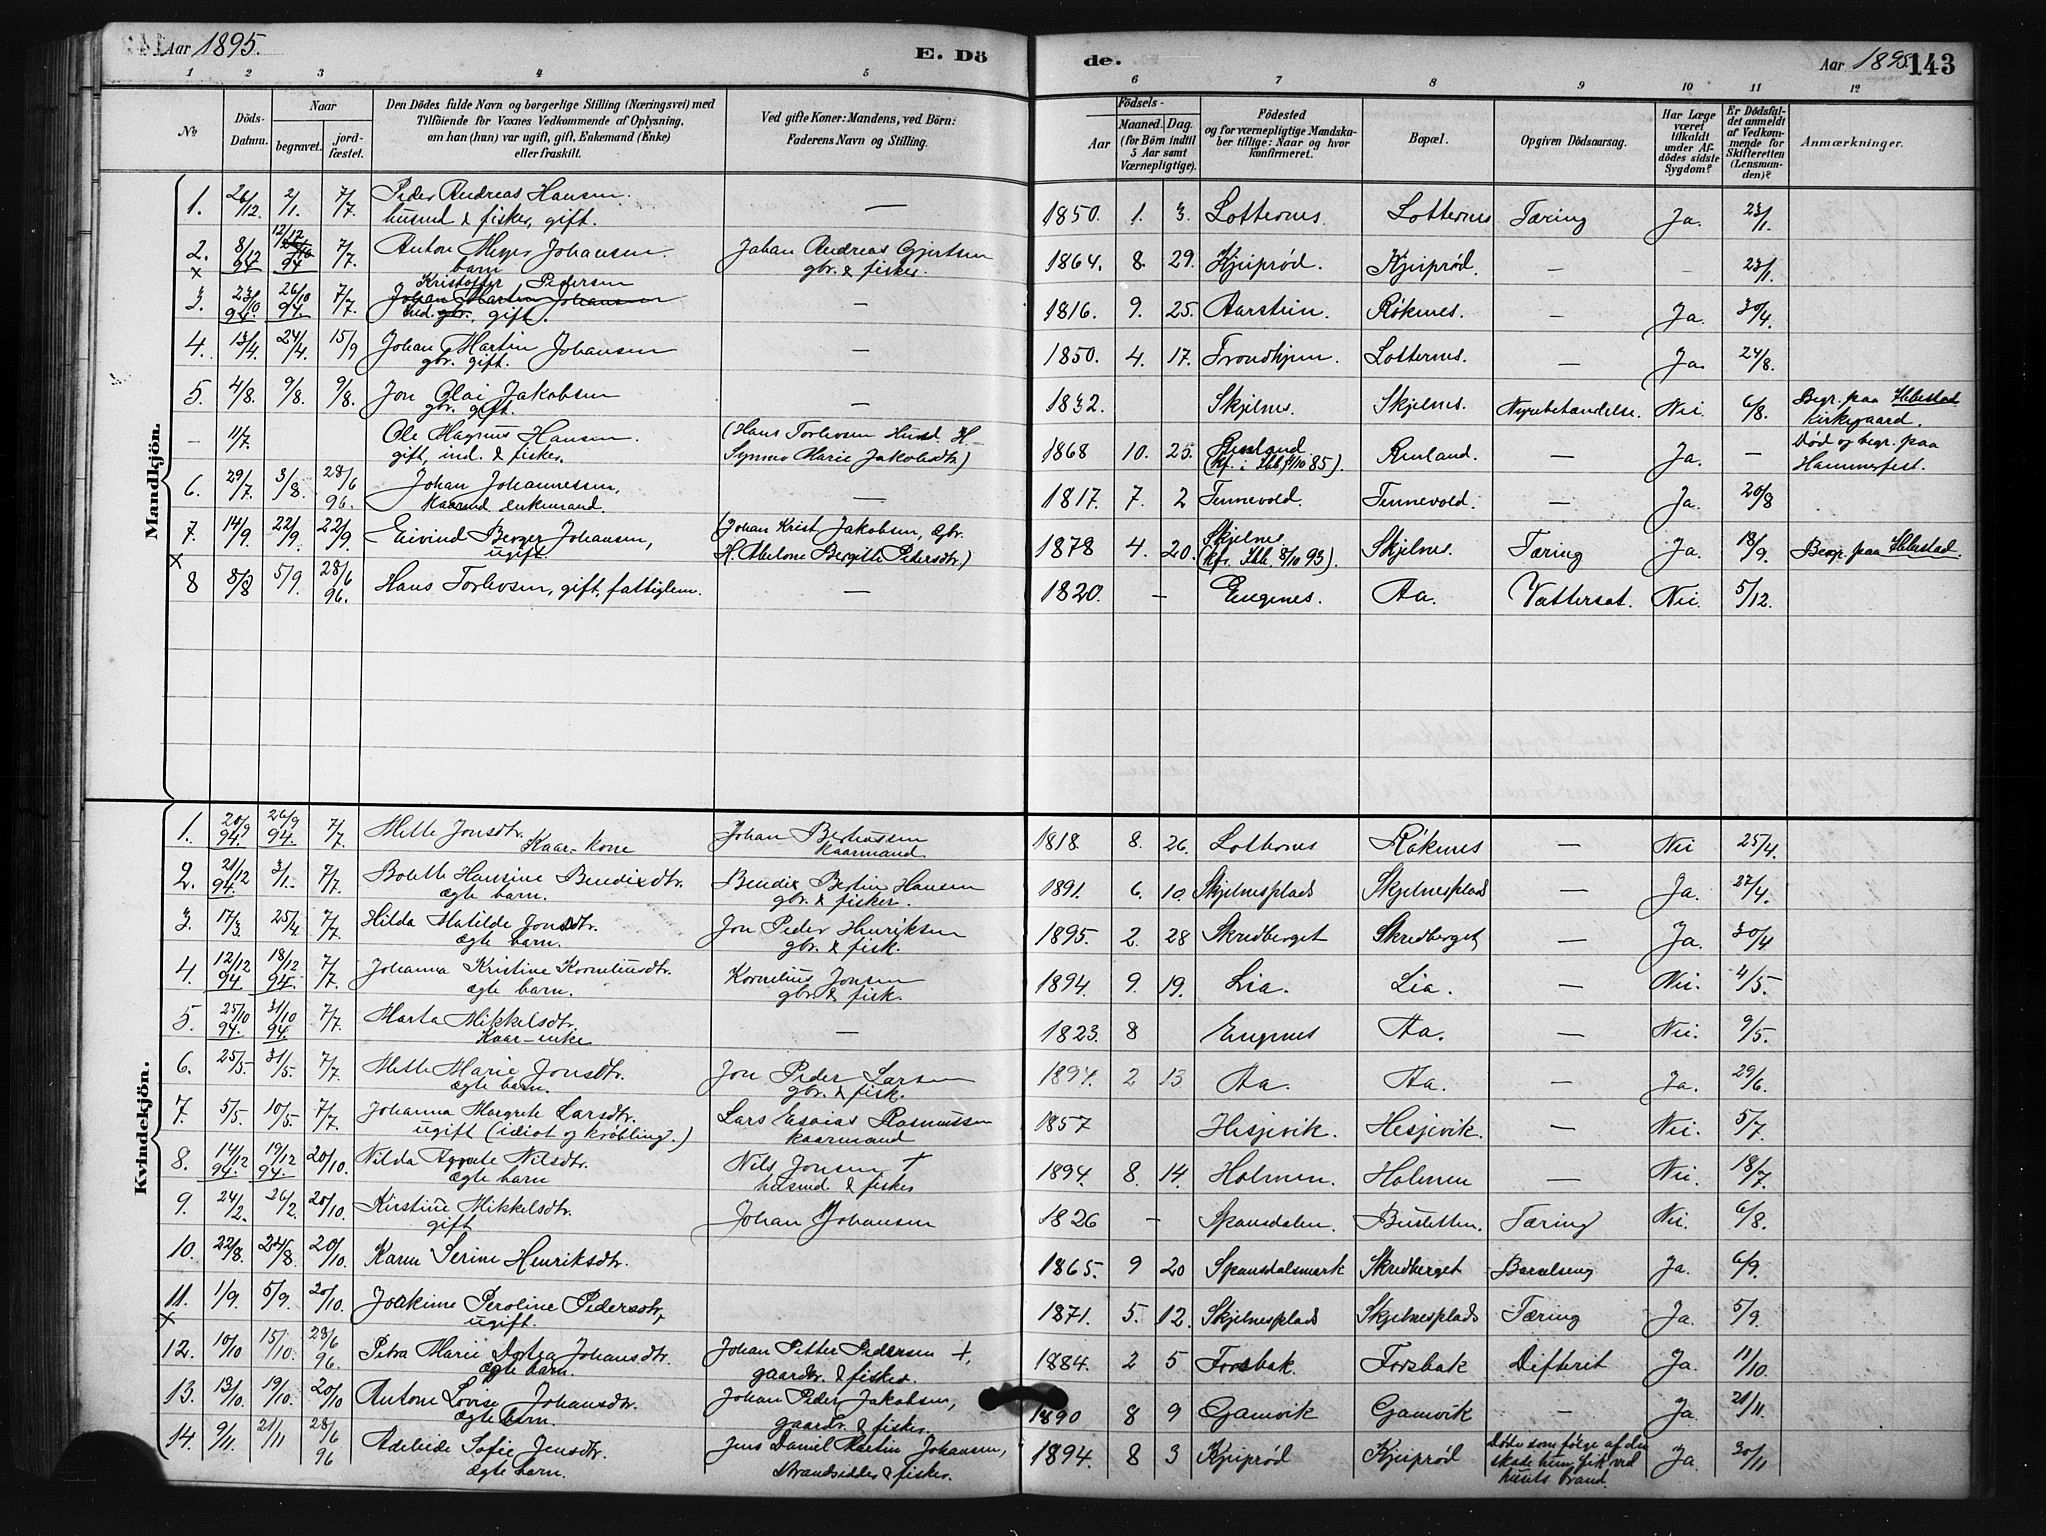 Aar 1895.
E. Dö
de.
Aar 1895.
143
1 2 3 4 5 6 7 8 9 10 11 12
No
Döds-Datum.
Naar
begravet.
jord-fæstet.
Den Dödes fulde Navn og borgerlige Stilling (Næringsvei) med
Tilföiende for Voxnes Vedkommende af Oplysning,
om han (hun) var ugift, gift, Enkemand (Enke)
eller fraskilt.
Ved gifte Koner: Mandens, ved Börn:
Faderens Navn og Stilling.
Födsels-
Aar
Maaned. Dag.
(for Börn indtil
5 Aar samt
Værnepligtige).
Födested
og for værnepligtige Mandska-
ber tillige: Naar og hvor
konfirmeret.
Bopæl.
Opgiven Dödsaarsag.
Har Læge
været
tilkaldt
under Af-
dödes sidste
Sygdom?
Er Dödsfal-
det anmeldt
af Vedkom-
mende for
Skifteretten
(Lensman-
den)?
Anmærkninger.
Mandkjön.
1. 26/12. 2/1. 7/7. Peder Andreas Hansen husmd & fisker, gift. — 1850. 1. 3. Lotternes. Lotternes Tæring Ja. 23/1.
2. 8/12 94 12/12 94 7/7. Anton Meyer Johansen. barn Johan Andreas Gjertsen gbr. & fisker. 1864. 8. 29. Kjeiprød. Kjeiprød. — – 23/1.
x
3. 23/10 94. 26/10 94. 7/7. Kristoffer Pedersen Johan Martin Johansen ind. gbr., gift. — 1816. 9. 25. Aarstein. Rökenes. — Ja. 30/4.
4. 13/4. 24/4. 15/9 Johan Martin Johansen gbr. gift. — 1850. 4. 17. Trondhjem. Lotternes. — Ja. 24/8.
5. 4/8. 9/8. 9/8. Jon Olai Jakobsen gbr. gift. — 1832. Skjelnes. Skjelnes. Nyrebetændelse. Nei. 6/8. Begr. paa Ibbestad kirkegaard.
– 11/7. Ole Magnus Hansen. gift, ind. & fisker. (Hans Torlevsen Husd H. Synnve Marie Jakobsdtr) 1868 10. 25. Renland. Ja. — Död og begr. paa Hammerfest.
6. 29/7. 3/8. 28/6 96. Johan Johannessen, kaarmd enkemand. — 1817. 7. 2 Tennevold. Tennevold. — Ja. 20/8
7. 14/9. 22/9. 22/9. Eivind Berger Johansen, ugift. (Johan Krist Jakobsen, gbr. H. Abelone Bergitte Pedersdtr.) 1878 4. 20. Skjelnes (kfr. Ibb. 8/10 93). Skjelnes. Tæring Ja. 18/9. Begr. paa Ibbestad.
x
8 8/8 5/9. 28/6 96. Hans Torlevsen, gift, fattiglem. — 1820. — Engenes. Aa. Vattersot. Nei. 5/12.
Kvindekjön.
1. 20/9 94. 26/9 94. 7/7. Mette Jonsdtr. Kaar-kone Johan Bertheussen kaarmand 1818. 8. 26. Lotternes Rökenes — Nei 25/4.
2. 21/12 94. 3/1. 7/7. Bolette Hansine Bendixdtr. ægte barn. Bendix Bertin Hansen gbr. & fisker. 1891. 6. 10. Skjelnesplads Skjelnesplads — Ja. 27/4.
3. 17/3 25/4 7/7. Hilda Matilde Jonsdtr. ægte barn. Jon Peder Henriksen gbr. & fisk. 1895. 2. 28 Skredberget Skredberget — Ja. 30/4
4. 12/12 94 18/12 94. 7/7. Johanna Kristine Korneliusdtr. ægte barn. Kornelius Jonsen gbr. & fisk. 1894. 9. 19. Lia. Lia. — Nei. 4/5.
5. 25/10 94. 31/10 94. 7/7. Marta Mikkelsdtr. Kaar-enke — 1823. 8 Engenes Aa. — Nei. 9/5.
6. 25/5. 31/5. 7/7. Mette Marie Jonsdtr. ægte barn. Jon Peder Larsen gbr. & fisk. 1894. 2 13. Aa. Aa. — Ja. 29/6.
7. 5/5. 10/5. 7/7. Johanna Margrete Larsdtr. ugift (idiot og krøbling.) Lars Esaias Rasmussen kaarmand 1857 Hesjevik. Hesjevik. — Nei. 5/7.
8. 14/12 94. 19/12 94. 20/10. Nilda Agnete Nilsdtr. ægte barn Nils Jonsen † husmd. & fisker 1894. 8. 14. Holmen. Holmen — Nei. 18/7.
9. 24/2. 26/2. 20/10. Kirstine Mikkelsdtr. gift Johan Johansen 1826 – Spansdalen. Busletten. Tæring Nei. 6/8.
10. 22/8. 24/8. 20/10. Karen Serine Henriksdtr. 1865. 9 20 Spansdalsmark Skredberget Barselseng Ja. 6/9.
11. 1/9. 5/9. 20/10. Joakime Peroline Pedersdtr, ugift. 1871. 5. 12. Skjelnesplads Skjelnesplads Tæring Ja. 5/9.
x
12. 10/10 15/10. 28/6 96. Petra Marie Dortea Johansdtr. ægte barn. Johan Petter Pedersen †, gaardbr. & fisker. 1884. 2 5 Forsbak. Forsbak Difterit Ja. 11/10.
13. 13/10. 19/10. 20/10 Antone Lovise Johansdtr. ægte barn. Johan Peder Jakobsen, gaardbr. & fisker. 1890 8 9 Gamvik Gamvik — Ja 21/11.
14. 9/11. 21/11 28/6 96 Adeleide Sofie Jensdtr. ægte barn. Jens Daniel Martin Johansen, strandsidder & fisker. 1894. 8 3 Kjeiprød Kjeiprød Døde som følge af den skade hun fik ved husets brand. Ja. 30/11